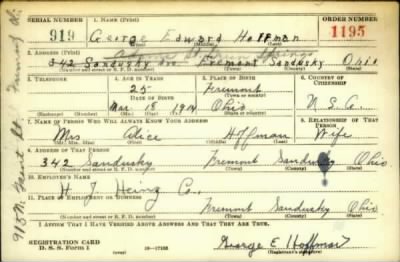 SERIAL NUMBER 1. NAME (Print) ORDER NUMBER
919 George Edward Hoffman 1195
(First) (Middle) (Last)
2. ADDRESS (Print)
342 Sandusky Ave Fremont Sandusky Ohio
(Number and street or R. F. D. number) (Town) (County) (State)
3. TELEPHONE 4. AGE IN YEARS 5. PLACE OF BIRTH 6. COUNTRY OF CITIZENSHIP
25 Fremont
DATE OF BIRTH (Town or county)
Mar. 1914 Ohio U. S. A.
(Exchange) (No.) (Mo.) (Day) (Yr.) (State or country)
7. NAME OF PERSON WHO WILL ALWAYS KNOW YOUR ADDRESS 8. RELATIONSHIP OF THAT PERSON
Mrs Alice Hoffman Wife
(Mr., Mrs., Miss) (First) (Middle) (Last)
9. ADDRESS OF THAT PERSON
342 Sandusky Fremont Sandusky Ohio
(Number and street or R. F. D. number) (Town) (County) (State)
10. EMPLOYER'S NAME
H. J. Heinz Co.,
11. PLACE OF EMPLOYMENT OR BUSINESS
Fremont Sandusky Ohio
(Number and street or R. F. D. number) (Town) (County) (State)
I AFFIRM THAT I HAVE VERIFIED ABOVE ANSWERS AND THAT THEY ARE TRUE.
REGISTRATION CARD
D. S. S. Form 1 George E. Hoffman
(Registrant's signature)